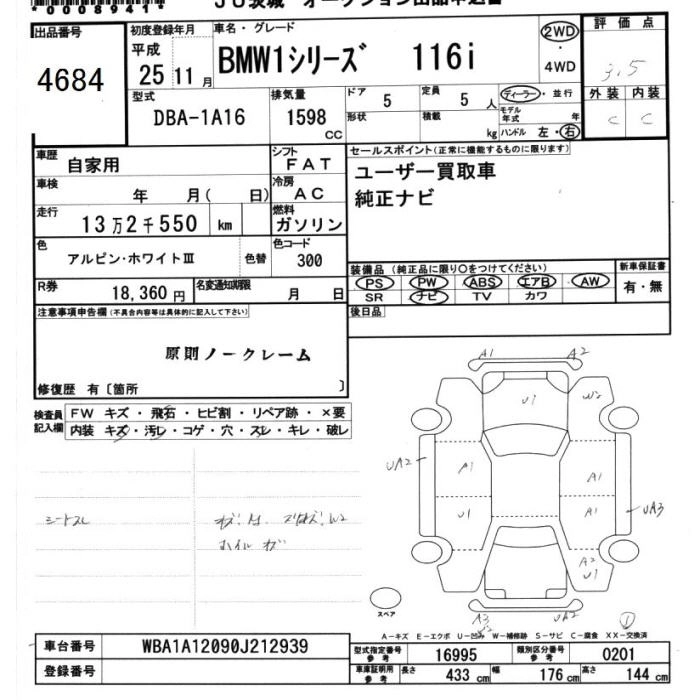 *00008941*
JU茨城 オークション出品申込書
出品番号
4684
初度登録年月
平成
25 11月
車名・グレード
BMW1シリーズ 116i
2WD
・
4WD
評価点
3.5
外装 内装
C C
型式
DBA-1A16
排気量
1598
CC
ドア 5
定員 5 人
形状
積載 kg
ディーラー・並行
モデル年式 年
ハンドル 左・右
車歴
自家用
シフト
FAT
車検
年 月( 日)
冷房
AC
走行
13万2千550 km
燃料
ガソリン
色
アルピン・ホワイトIII
色替
色コード
300
R券
18,360円
名変通知期限
月 日
セールスポイント(正常に機能するものに限ります)
ユーザー買取車
純正ナビ
装備品(純正品に限り○をつけてください)
PS PW ABS エアB AW
SR ナビ TV カワ
新車保証書
有・無
後日品
注意事項申告欄(不具合内容等は具体的に記入して下さい)
原則ノークレーム
修復歴 有〔箇所 〕
検査員記入欄
FW キズ・飛石・ヒビ割・リペア跡・×要
内装 キズ・汚レ・コゲ・穴・スレ・キレ・破レ
シートスレ
W2
ホイル
A1 A2
U1
W2
UA2
A1
U1
A1
A1
UA3
A2
U1
A3
UA2
1
スペア
A-キズ E-エクボ U-凹み W-補修跡 S-サビ C-腐食 XX-交換済
車台番号
WBA1A12090J212939
登録番号
型式指定番号
参考
16995
類別区分番号
参考
0201
車庫証明用
参考
長さ 433 cm
幅 176 cm
高さ 144 cm